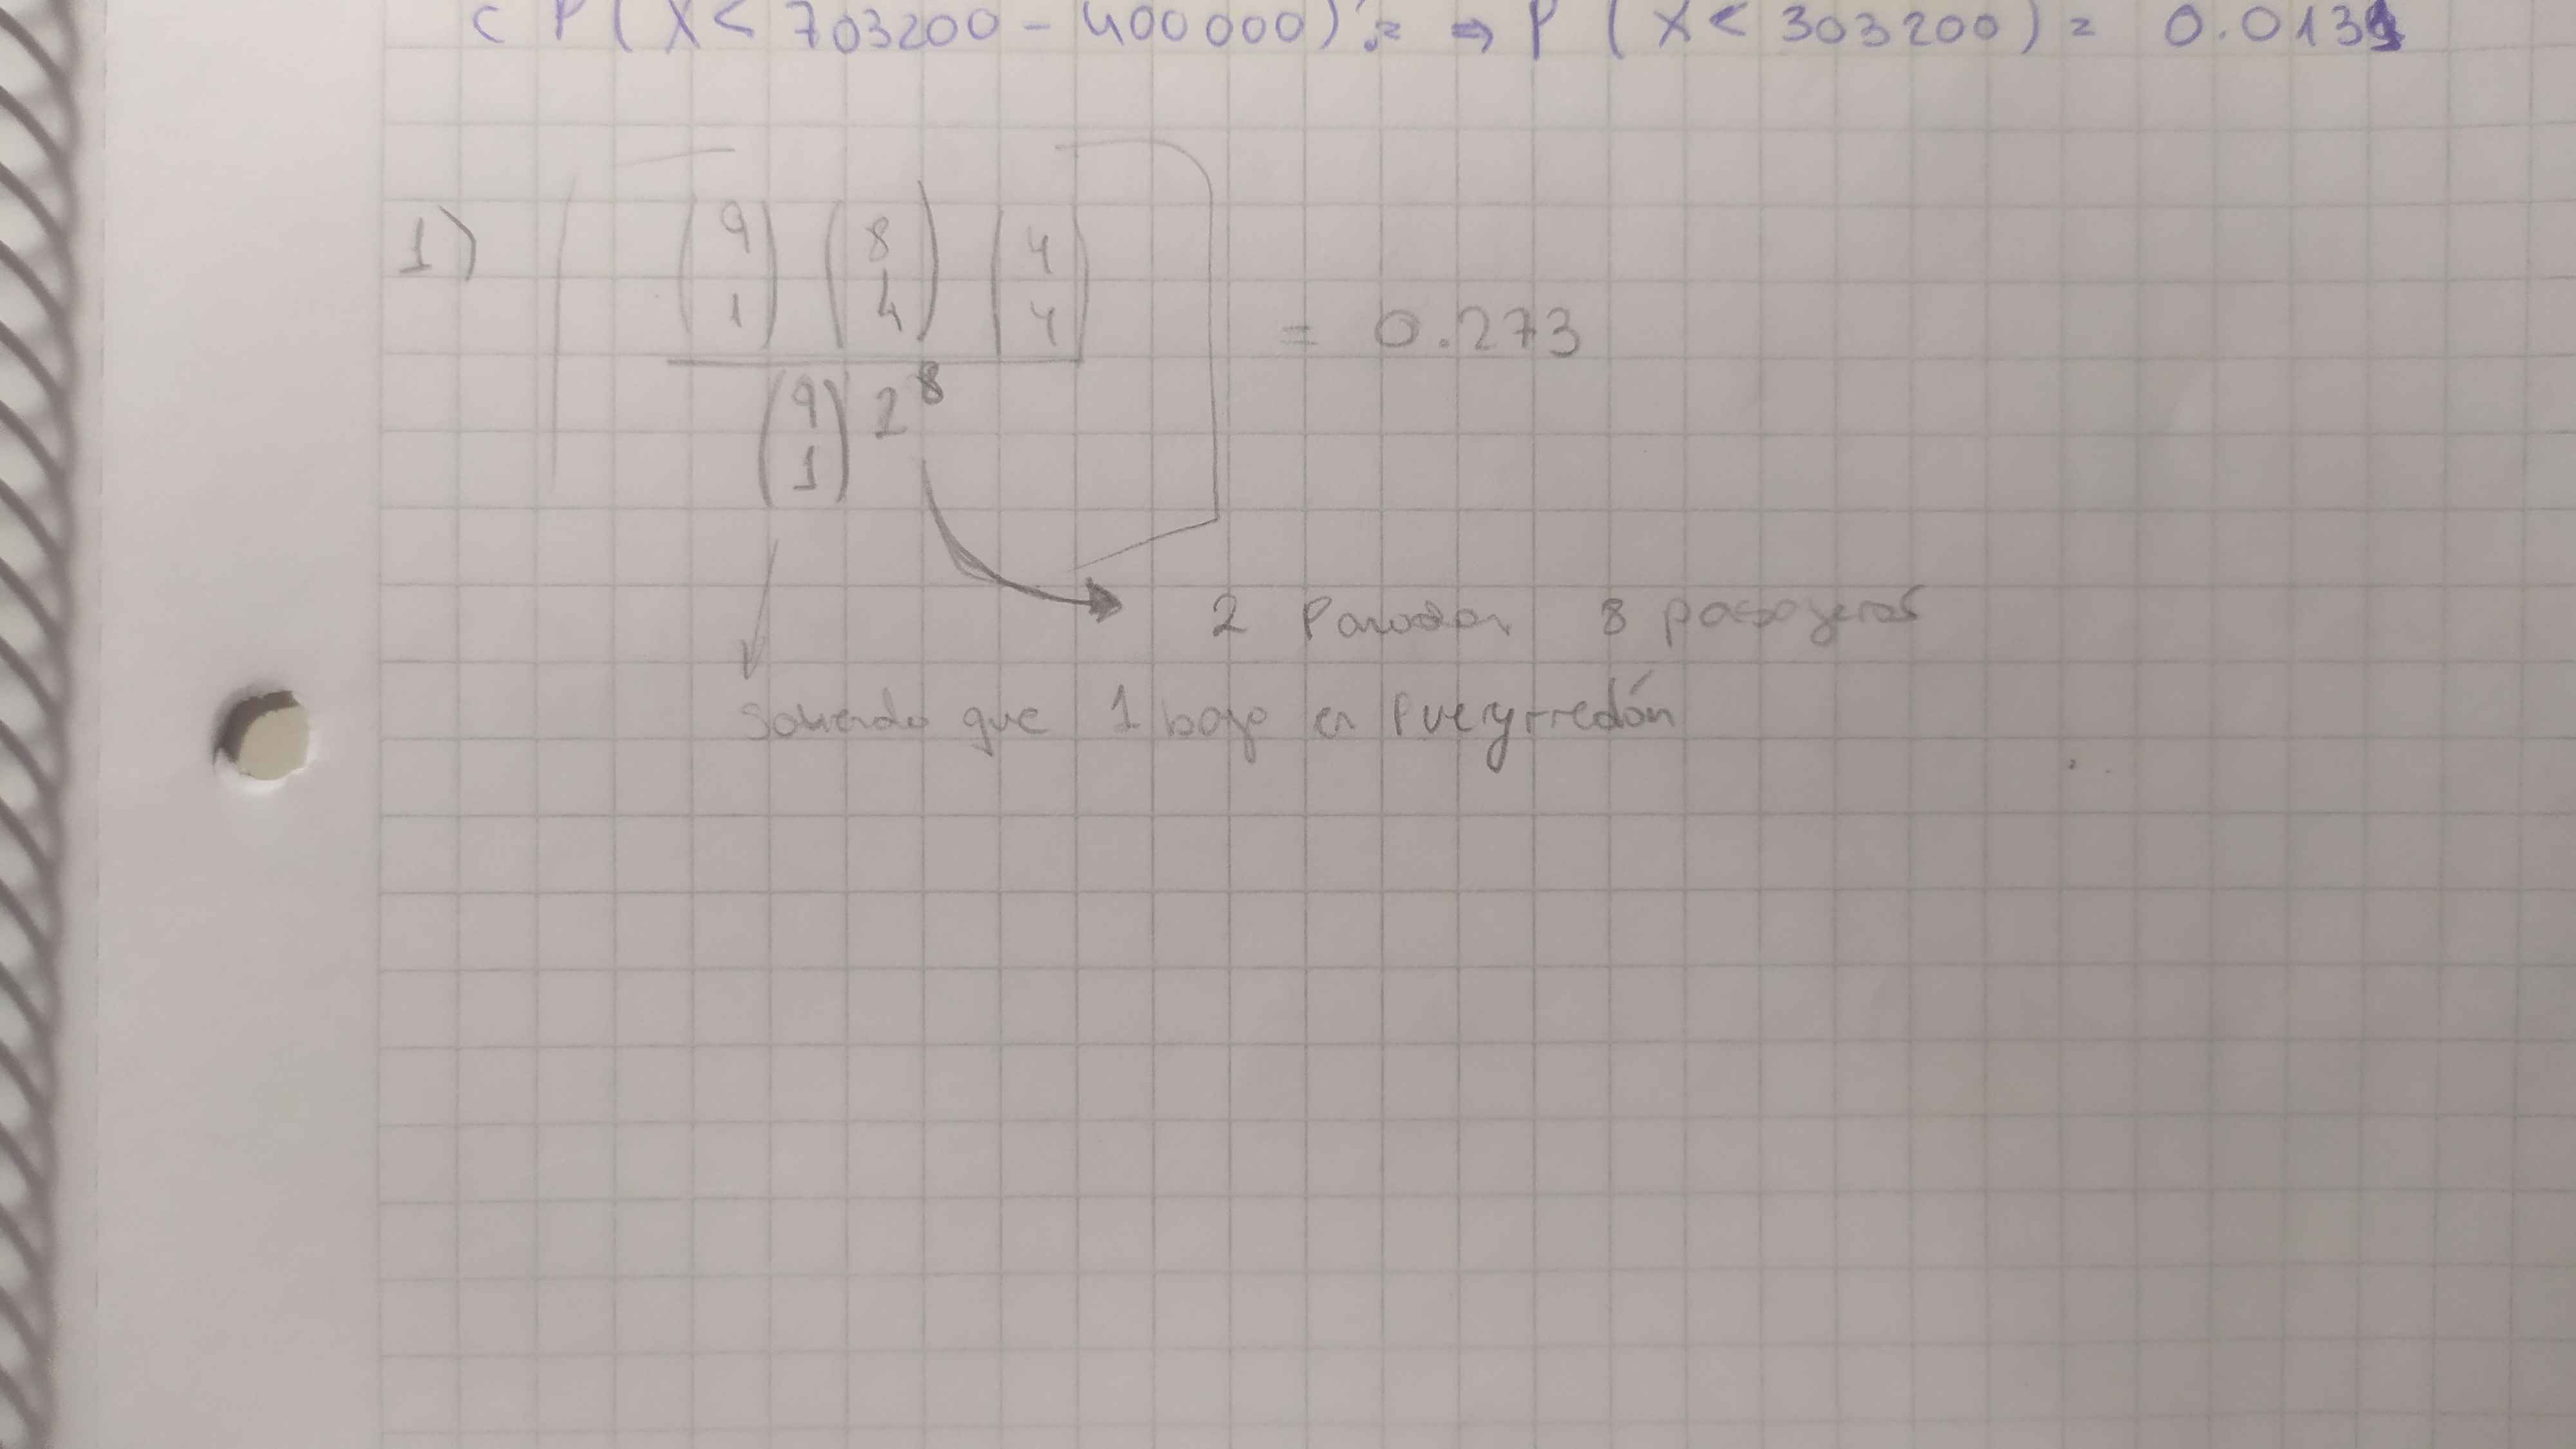 c P ( X < 703200 - 400000 ) = ⇒ P ( X < 303200 ) = 0.0131
1) (9 1) (8 4) (4 4)
= 0.273
(9 1) 2^8
2 Paradas 8 pasajeros
Sabiendo que 1 bajo en Pueyrredón